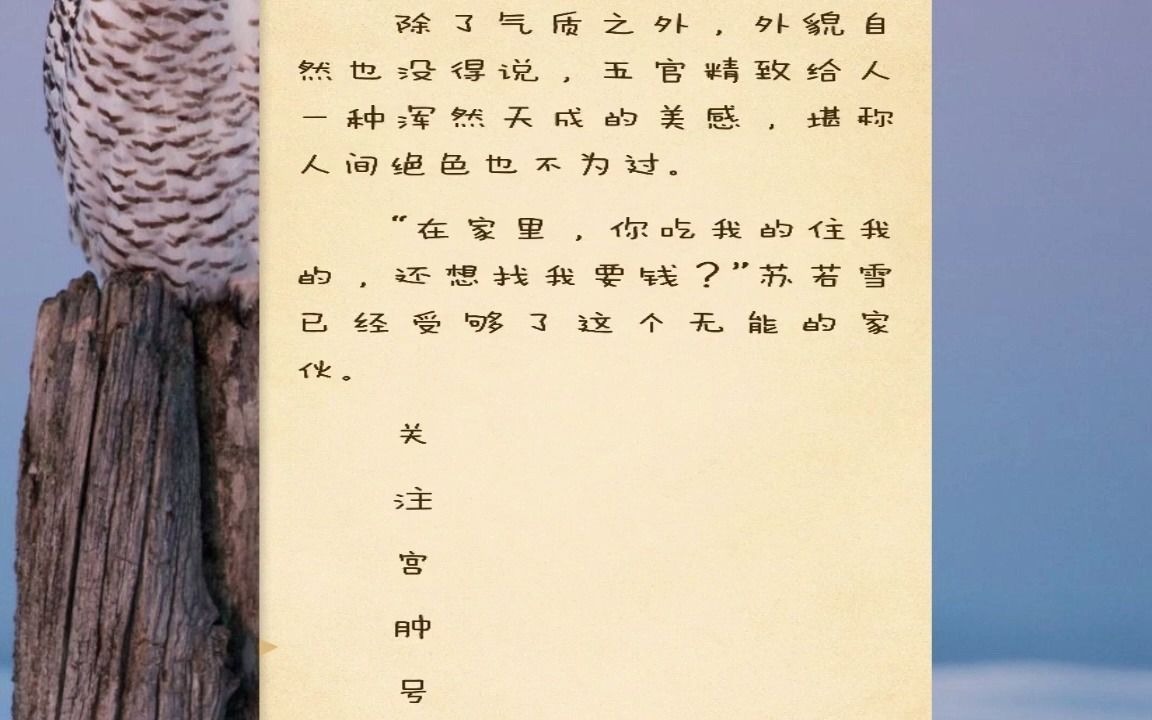 除了气质之外，外貌自
然也没得说，五官精致给人
一种浑然天成的美感，堪称
人间绝色也不为过。
“在家里，你吃我的住我
的，还想找我要钱？”苏若雪
已经受够了这个无能的家
伙。
关
注
宫
肿
号